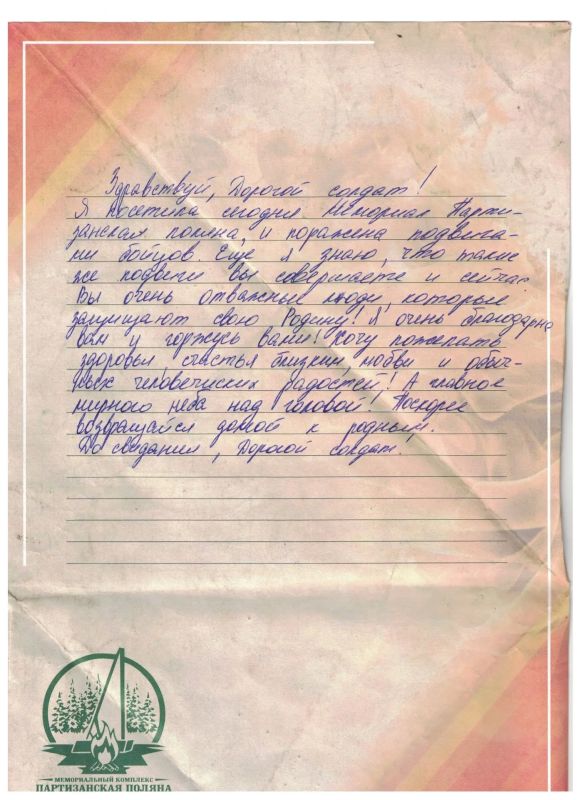 Здравствуй, Дорогой солдат!
Я посетила сегодня Мемориал Парти-
занская поляна, и поражена подвига-
ми бойцов. Еще я знаю, что такие
же подвиги вы совершаете и сейчас.
Вы очень отважные люди, которые
защищают свою Родину! Я очень благодарна
вам и горжусь вами! Хочу пожелать
здоровья, счастья близким, любви и обыч-
ных человеческих радостей! А главное
мирного неба над головой! Поскорее
возвращайся домой к родным.
До свидания, Дорогой солдат.
МЕМОРИАЛЬНЫЙ КОМПЛЕКС
ПАРТИЗАНСКАЯ ПОЛЯНА